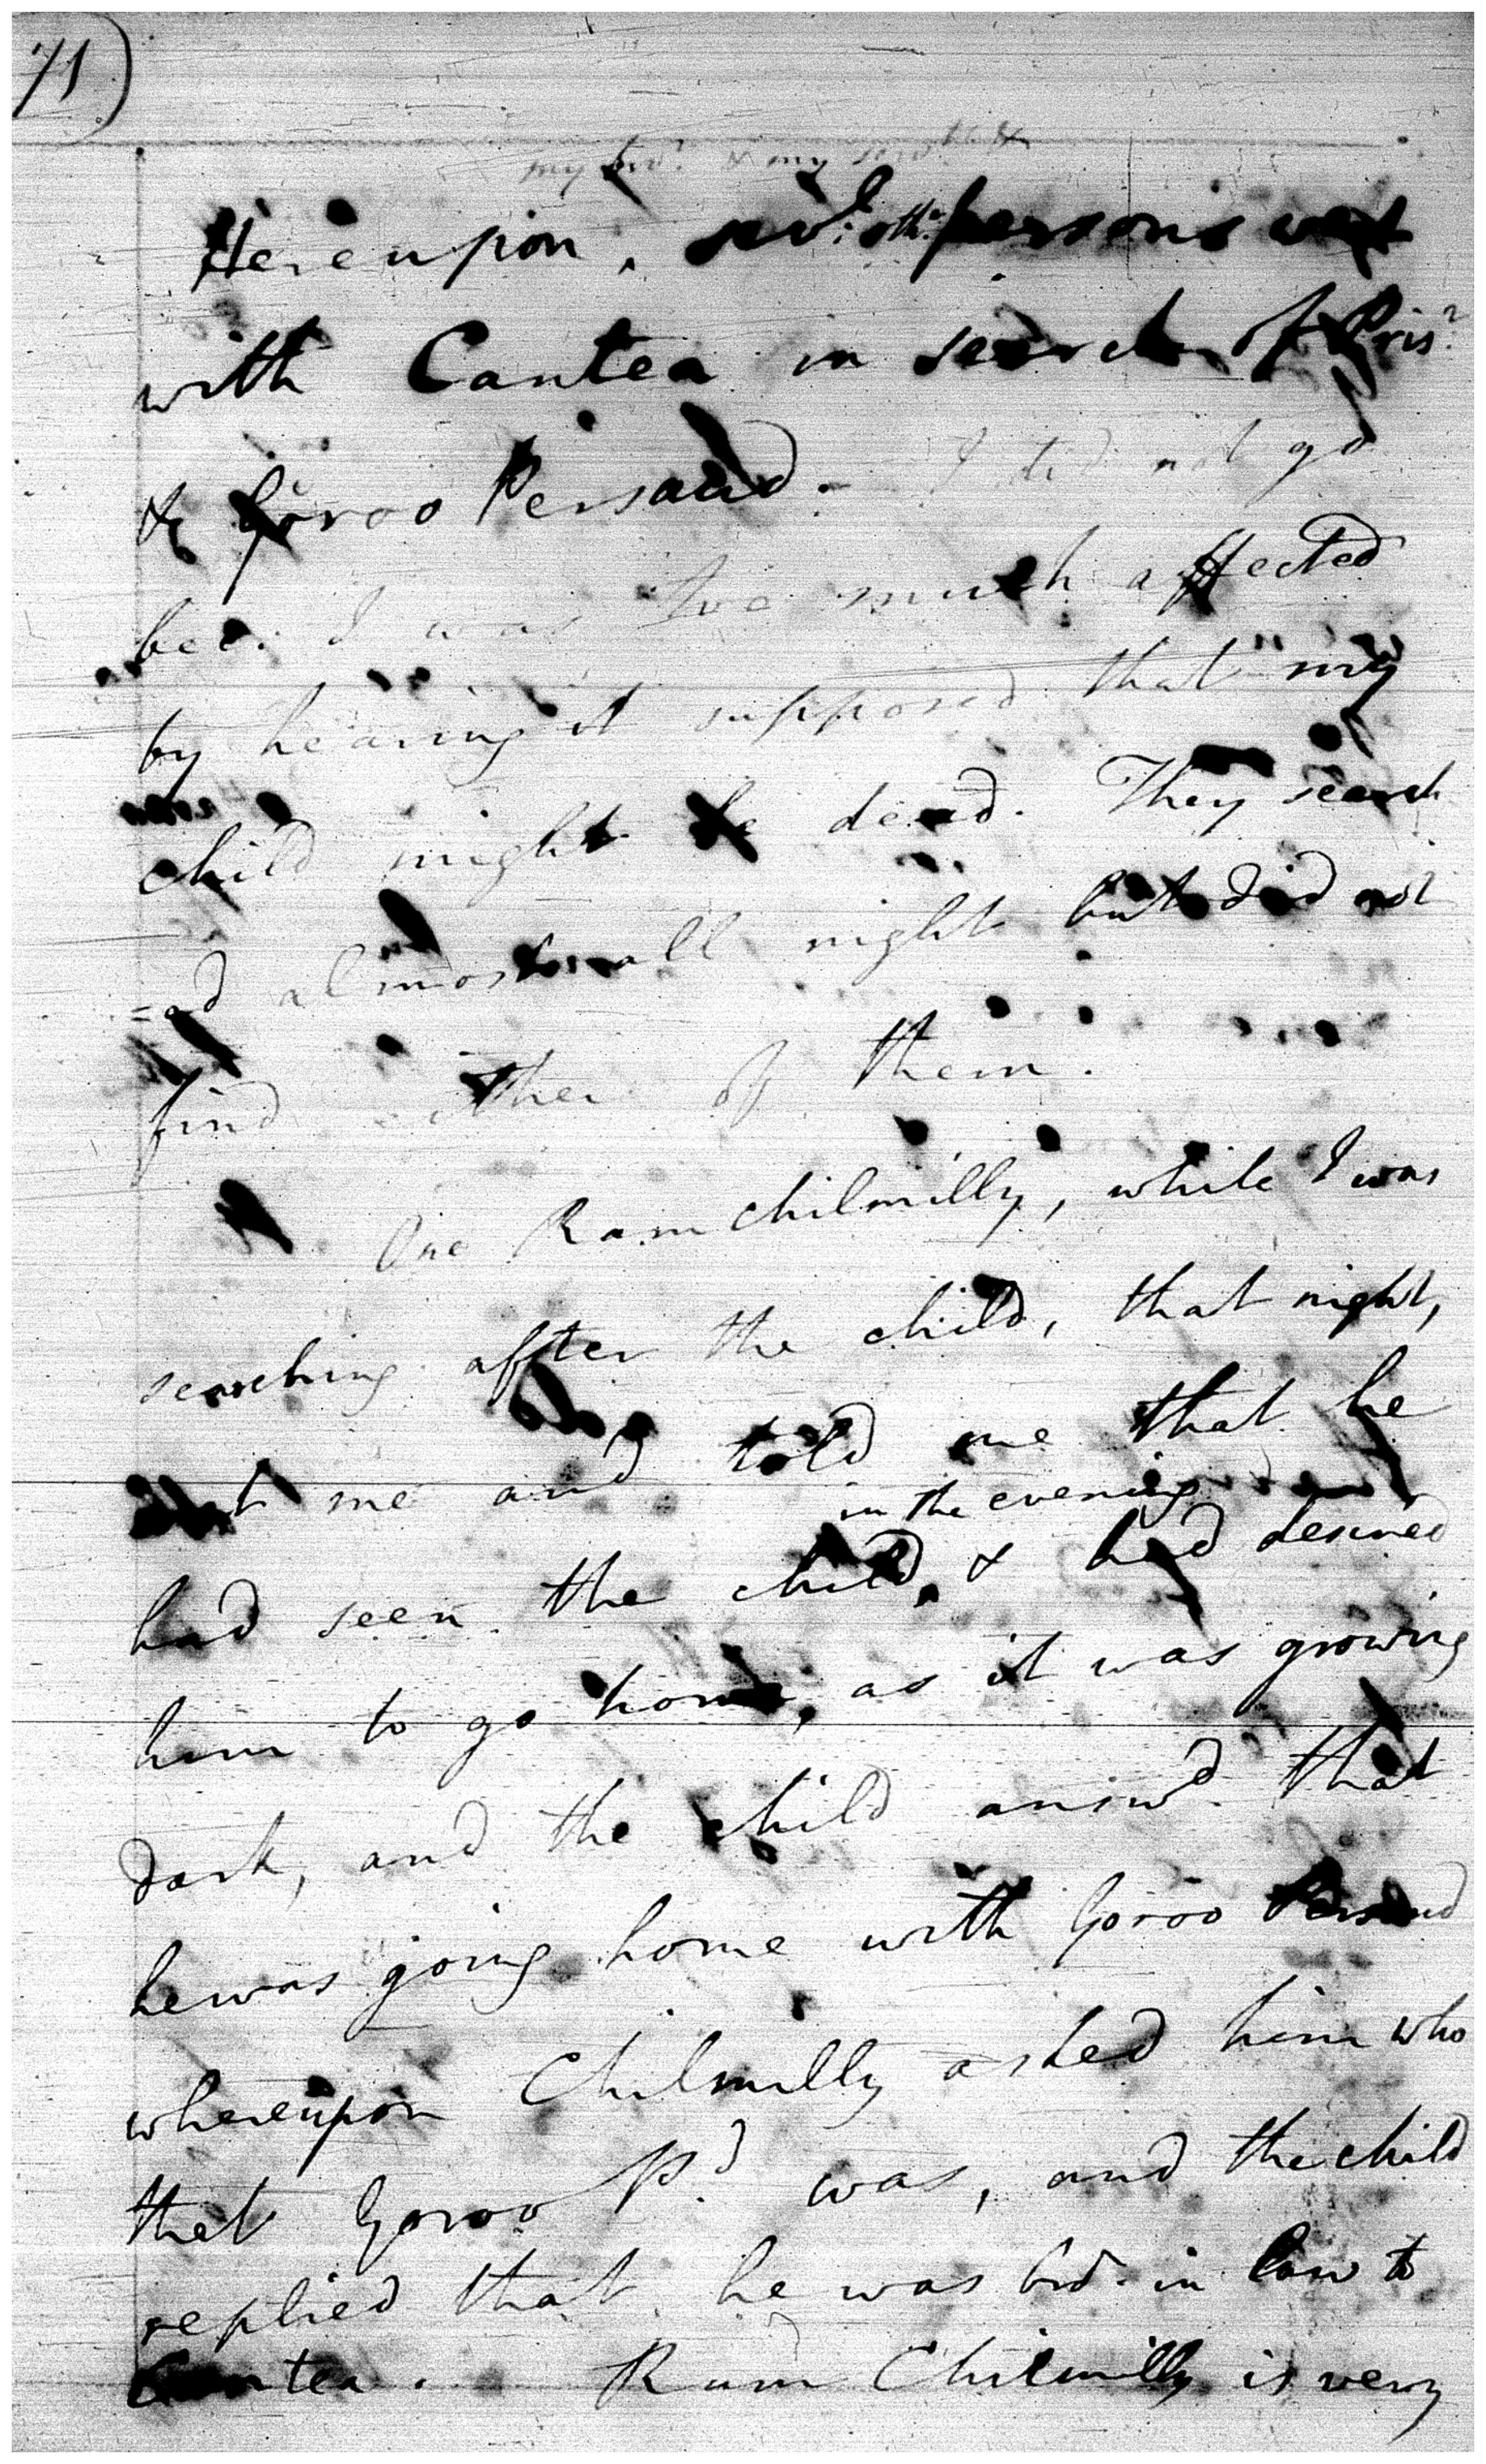 71)
my bro.^r & my
Hereupon, sev.^l oth.^r persons went
with Cantea in search of Pris.^r
& Goroo Persaud. I did not go
bec. I was too much affected
by hearing it supposed that my
child might be dead. They search
=ed almost all night but did not
find either of them.
One Ramchilmilly, while I was
searching after the child, that night,
met me and told me that he
in the evening
had seen the child, & had desired
him to go home, as it was growing
dark, and the child answ.^d that
he was going home with Goroo Persaud
whereupon Chilmilly asked him who
that Goroo P.^d was, and the child
replied that he was bro. in law to
Cantea. Ram Chilmilly is very